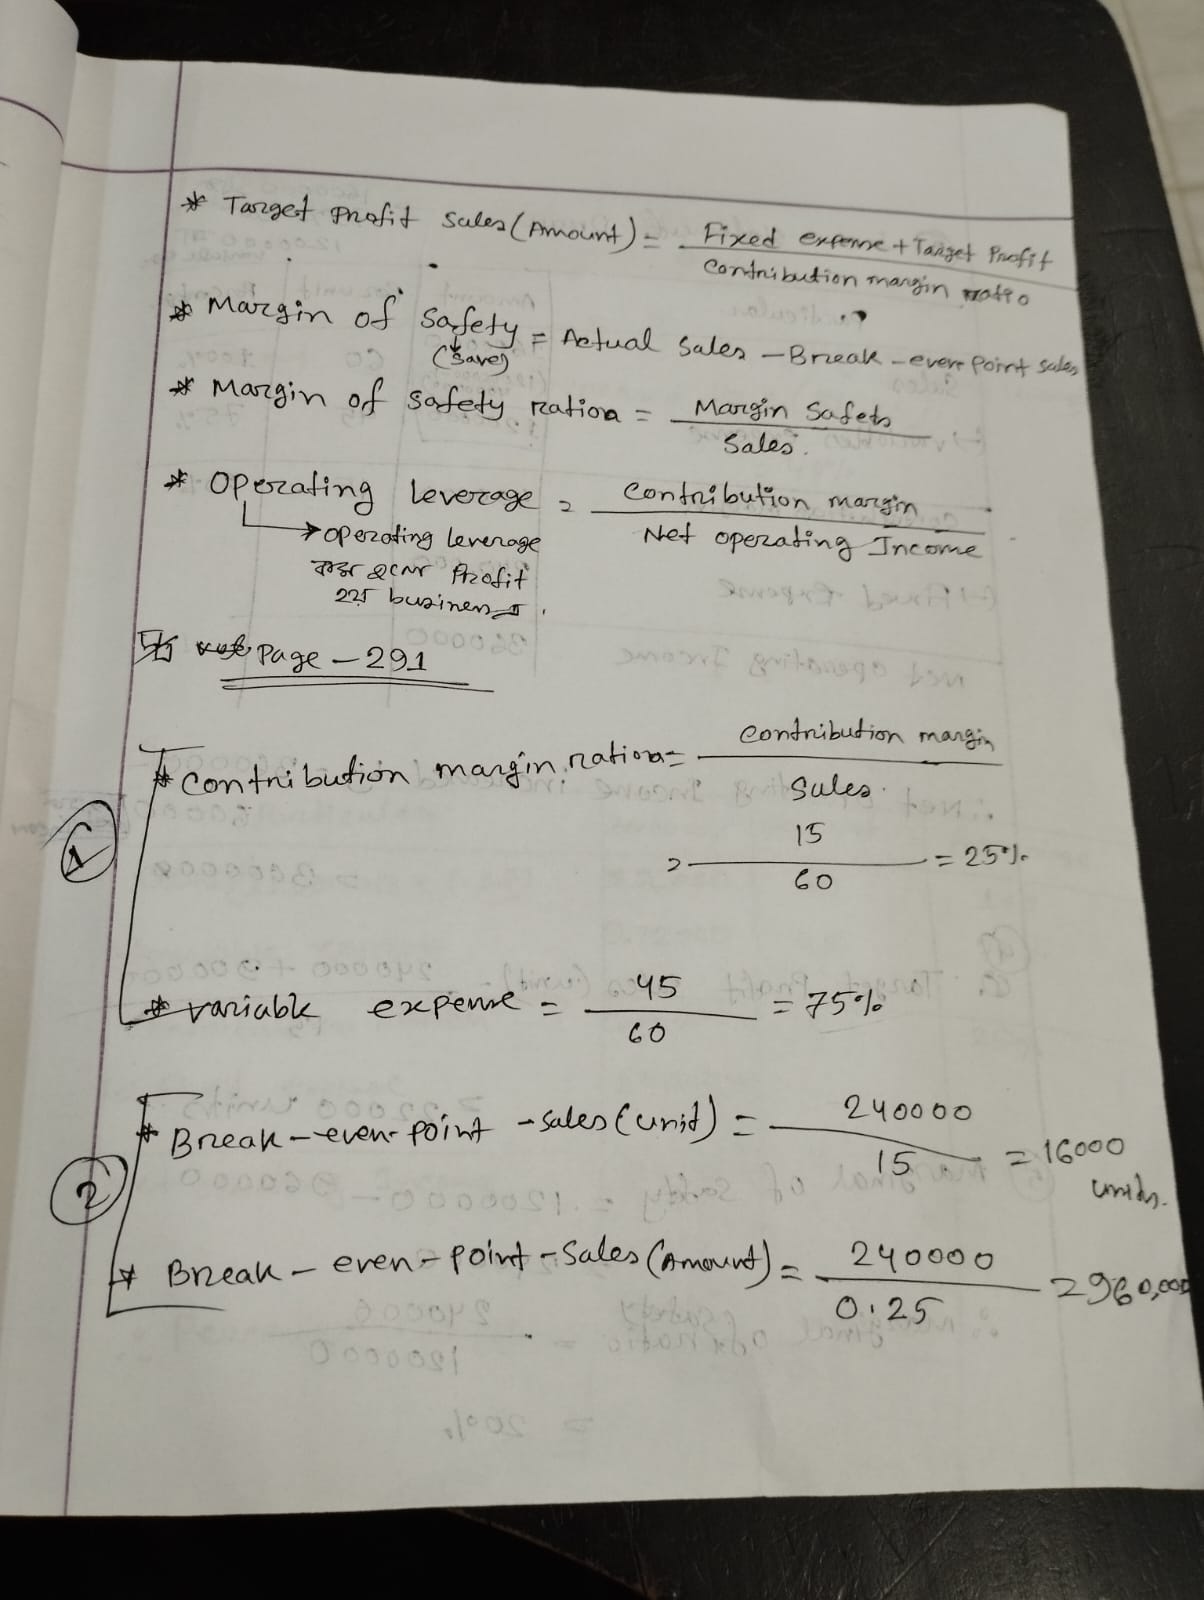 * Target profit sales (Amount) = Fixed expense + Target Profit / Contribution margin ratio
* Margin of safety = Actual sales - Break-even point sales
(save)
* Margin of safety ration = Margin Safety / Sales.
* Operating leverage = Contribution margin / Net operating Income
→ operating leverage
Profit
business
Page - 291
1
* Contribution margin ration = Contribution margin / Sales.
= 15 / 60 = 25%
* variable expense = 45 / 60 = 75%
2
* Break-even-point-sales (unit) = 240000 / 15 = 16000 units.
* Break-even-point-sales (Amount) = 240000 / 0.25 = 960,000